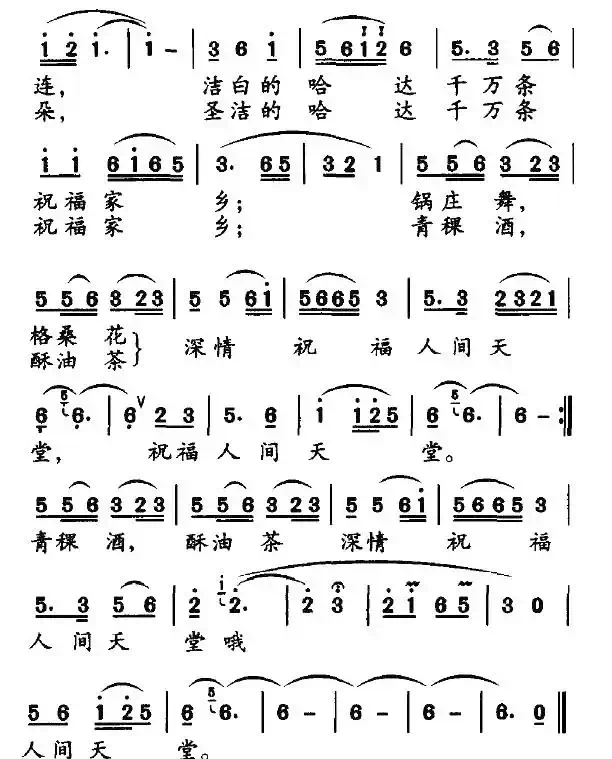 1 2 1. | 1 - | 3 6 1 | 5 6 1 2 6 | 5. 3 5 6 |
连, 洁白的哈 达千万条
朵, 圣洁的哈 达千万条
1 1 6 1 6 5 | 3. 6 5 | 3 2 1 | 5 5 6 3 2 3 |
祝福家 乡; 锅庄 舞,
祝福家 乡; 青稞 酒,
5 5 6 3 2 3 | 5 5 6 1 | 5 6 6 5 3 | 5. 3 2 3 2 1 |
格桑 花 } 深情 祝 福人间天
酥油 茶
6 5 6. | 6 V 2 3 | 5. 6 | 1 1 2 5 | 6 5 6. | 6 - :||
堂, 祝福人 间 天 堂。
5 5 6 3 2 3 | 5 5 6 3 2 3 | 5 5 6 1 | 5 6 6 5 3 |
青稞 酒, 酥油 茶 深情 祝 福
5. 3 5 6 | 2 i 2. | 2 3 | 2 1 6 5 | 3 0 |
人 间天 堂哦
5 6 1 2 5 | 6 5 6. | 6 - | 6 - | 6 - | 6. 0 ||
人间天 堂。